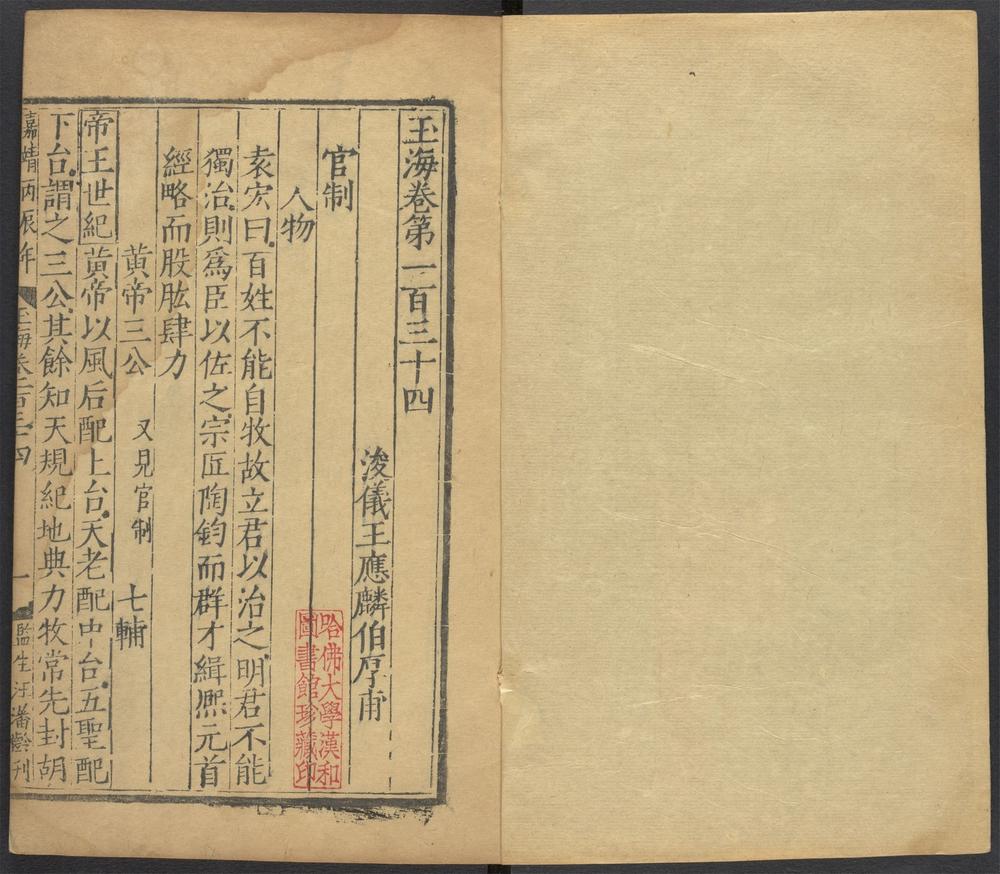 玉海卷第一百三十四
浚儀王應麟伯厚甫
官制
人物
袁宏曰百姓不能自牧故立君以治之明君不能
獨治則爲臣以佐之宗匠陶鈞而群才緝熈元首
經略而股肱肆力
黃帝三公 又見官制 七輔
帝王世紀黃帝以風后配上台天老配中台五聖配
下台謂之三公其餘知天規紀地典力牧常先封胡
嘉靖丙辰年 玉海卷一百三十四 一 監生汪潘齡刋
哈佛大學漢和
圖書館珍藏印